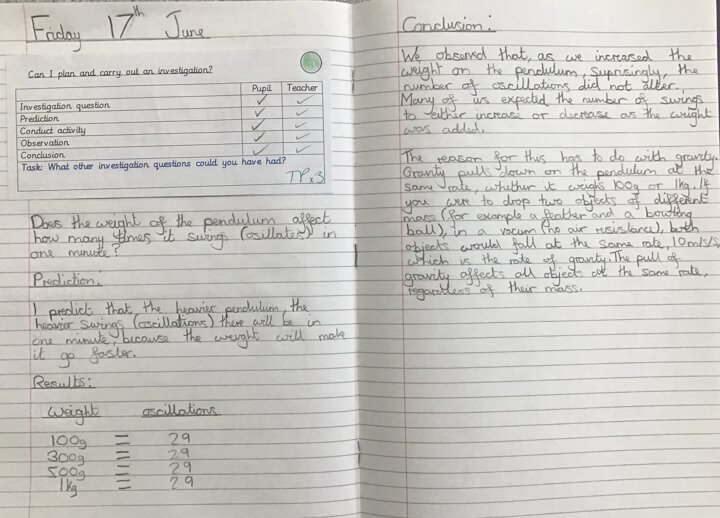 Friday 17th June
Can I plan and carry out an investigation?
Pupil Teacher
Investigation question ✓ ✓
Prediction ✓ ✓
Conduct activity ✓ ✓
Observation ✓ ✓
Conclusion ✓ ✓
Task: What other investigation questions could you have had?
TPx3
Does the weight of the pendulum affect
how many times it swings (osillates) in
one minute?
Prediction:
I predict that, the heavier pendulum, the
heavier swings (oscillations) there will be in
one minute, because the weight will make
it go faster.
Results:
weight oscillations
100g = 29
300g = 29
500g = 29
1kg = 29
Conclusion:
We observed that, as we increased the
weight on the pendulum, suprisingly, the
number of oscillations did not alter.
Many of us expected the number of swings
to either increase or decrease as the weight
was added.
The reason for this has to do with gravity.
Gravity pulls down on the pendulum at the
same rate, whether it weighs 100g or 1kg. If
you were to drop two objects of different
mass (for example a feather and a bowling
ball), in a vacum (no air resistance), both
objects would fall at the same rate, 10m/s/s,
which is the rate of gravity. The pull of
gravity affects all objects at the same rate,
regardless of their mass.